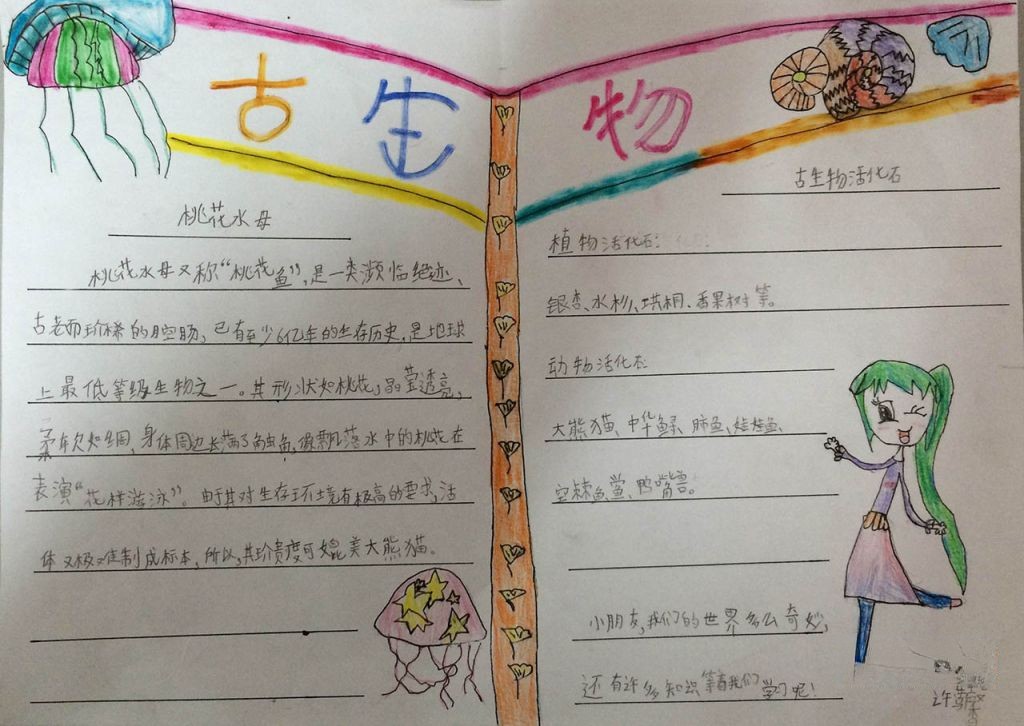 古生物
桃花水母
桃花水母又称“桃花鱼”,是一类濒临绝迹、
古老而珍稀的腔肠,已有至少6亿年的生存历史,是地球
上最低等级生物之一。其形状如桃花,晶莹透亮,
柔软如绸,身体周边长满了触角,像飘落水中的桃花在
表演“花样游泳”。由于其对生存环境有极高的要求,活
体又极难制成标本,所以,其珍贵度可媲美大熊猫。
古生物活化石
植物活化石:
银杏、水杉、珙桐、香果树等。
动物活化石:
大熊猫、中华鲟、肺鱼、娃娃鱼、
空棘鱼、鲎、鸭嘴兽。
小朋友,我们的世界多么奇妙,
还有许多知识等着我们学习呢!
许